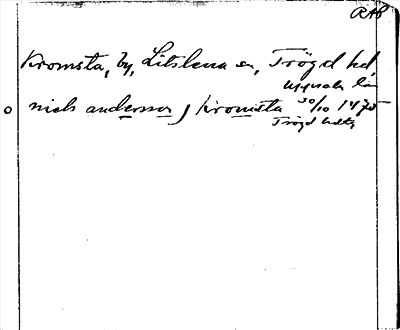 RAP
Kromsta, by, Litslena sn, Trögd hd
Uppsala län
o niels andersson j kromsta 30/10 1475
Trögd hdtg